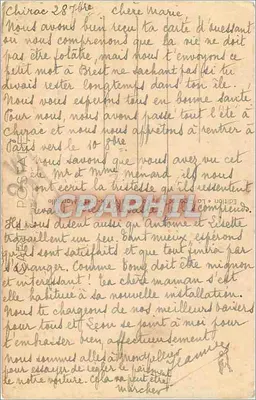 Chirac 28 7bre Chère Marie
Nous avons bien reçu ta carte d'ouessant
ou nous comprenons que la vie ne doit
pas être folâtre, mais nous t'envoyons ce
petit mot à Brest ne sachant pas si tu
devais rester longtemps dans ton île.
Nous vous espérons tous en bonne santé
Pour nous, nous avons passé tout l'été à
Chirac et nous nous apprêtons à rentrer à
Paris vers le 10 8bre
nous savons que vous avez vu cet
été Mr et Mme menard ils nous
ont écrit la tristesse qu'ils ressentent
comprends.
Ils nous disent aussi qu'Antoine et Lisette
travaillent un peu. Tant mieux espérons
sont satisfaits et que tout finira par
s'arranger. Comme Tony doit être mignon
et interessant! Ta chère maman s'est
elle habituée à sa nouvelle installation.
Nous te chargeons de nos meilleurs baisers
pour tous et Léon se joint à moi pour
t'embrasser bien affectueusement
Nous sommes allés à
pour essayer de régler le paiement
de notre voiture. Cela va peut être
marcher
CPAPHIL